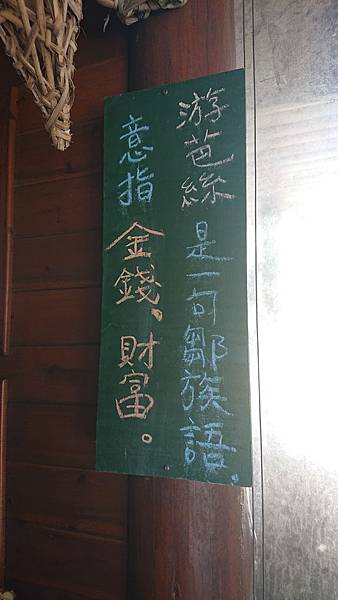 游芭絲是一句鄒族語.
意指金錢、財富。